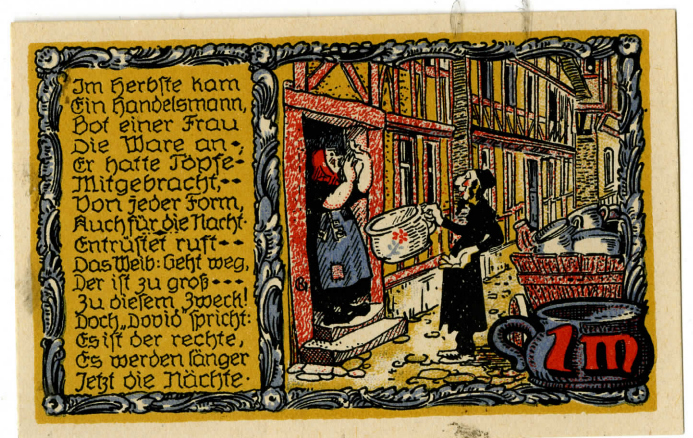 Im Herbste kam
Ein Handelsmann,
Bot einer Frau
Die Ware an·,
Er hatte Töpfe·
Mitgebracht,··
Von jeder Form,
Auch für die Nacht·
Entrüstet ruft··
Das Weib: Geht weg,
Der ist zu groß···
Zu diesem Zweck!
Doch „David" spricht:
Es ist der rechte,
Es werden länger
Jetzt die Nächte·
1 M